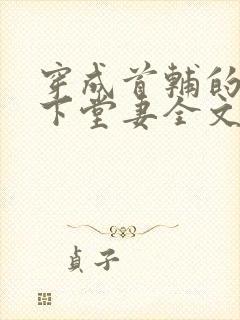 穿成首辅的
下堂妻全文
贞子